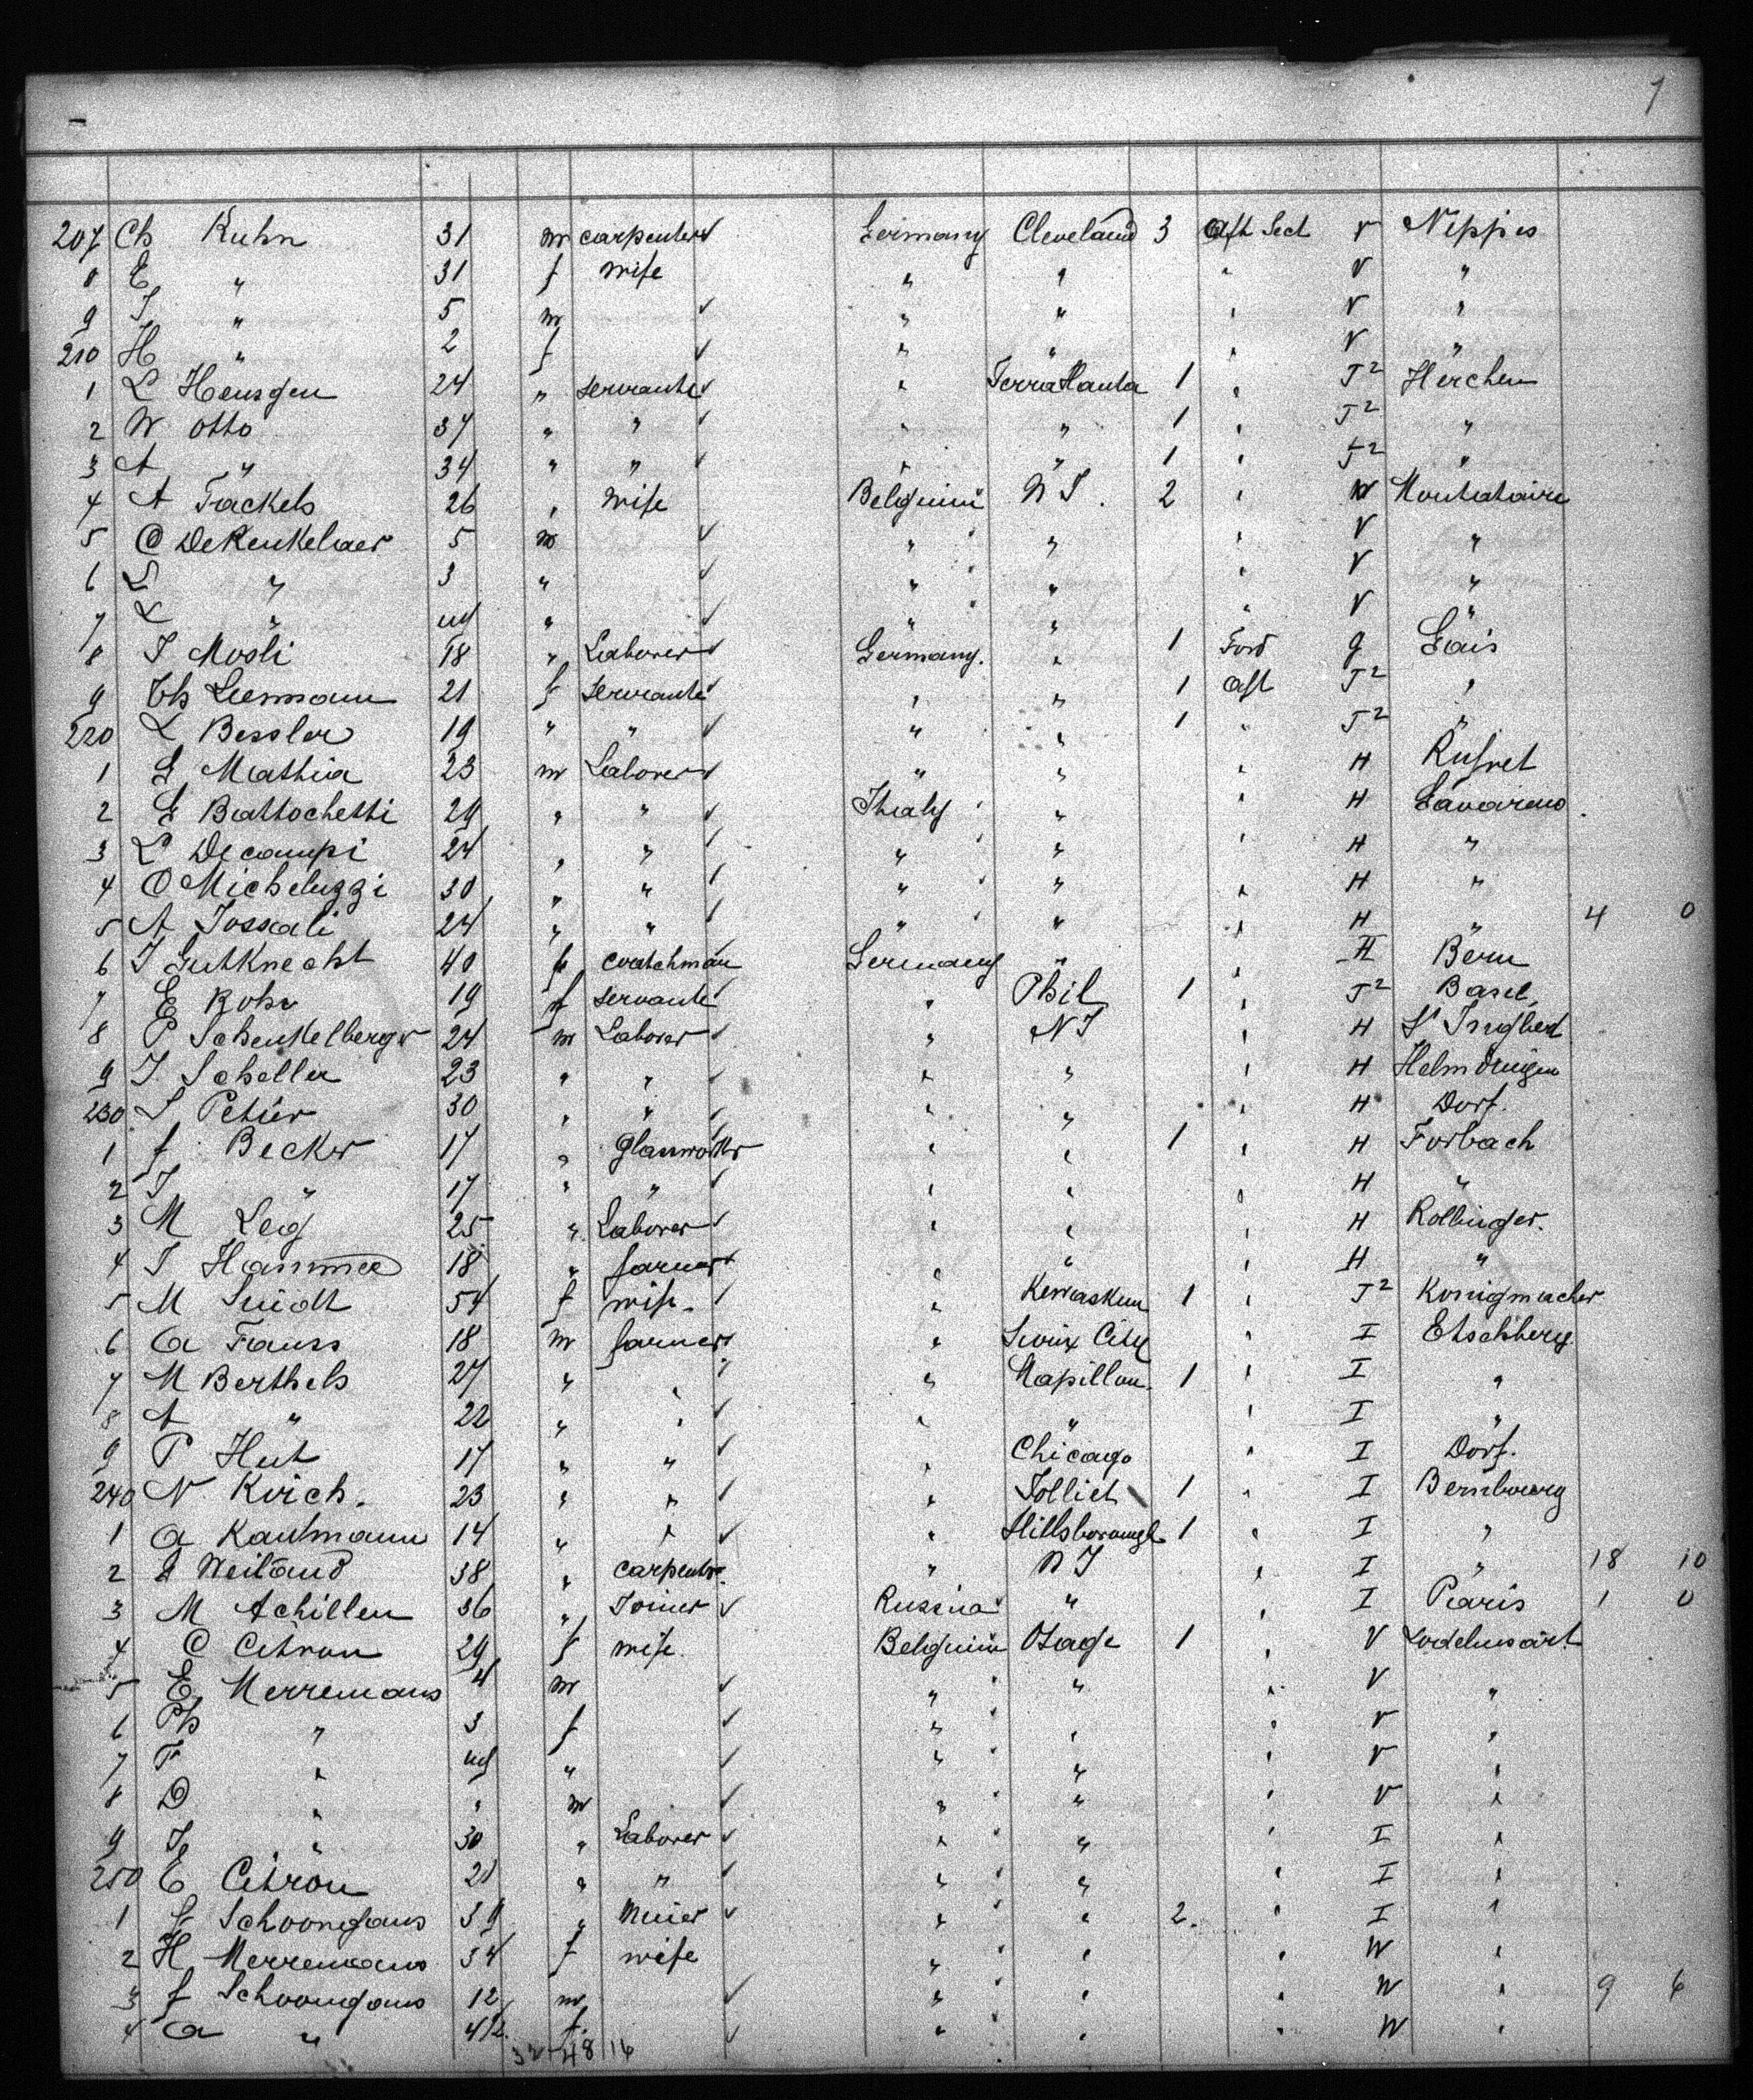 7
207 Ch Kuhn 31 m carpenter ✓ Germany Cleveland 3 Aft Sect V Nippes
8 E " 31 f wife " " " V "
9 J " 5 m ✓ " " " V "
210 H " 2 f ✓ " " " V "
1 L Heusgen 24 " servante ✓ " Terra Hauta 1 " T² Herchen
2 W Otto 37 " " ✓ " " 1 " T² "
3 A " 34 " " ✓ " " 1 " T² "
4 A Frackels 26 " wife Belgium N J. 2 " W Montataire
5 C DeKeukelaer 5 m ✓ " " " V "
6 L " 3 " ✓ " " " V "
7 L " inf " ✓ " " " V "
8 J Mosli 18 " Laborer ✓ Germany. " 1 Ford g Gais
9 Th Liemann 21 f servante ✓ " " 1 aft T² "
220 L Bessler 19 " " ✓ " " 1 " T² "
1 G Mathia 23 m Laborer ✓ " " " H
2 G Battochetti 29 " " ✓ Ithaly " " H Gavareno
3 L Decampi 24 " " ✓ " " " H "
4 O Micheluzzi 30 " " ✓ " " " H "
5 A Tossali 24 " " ✓ " " " H " 4 0
6 J Gutknecht 40 coatchman Germany " " H Bern
7 E Rohr 19 f servante ✓ " Phil 1 " T² Basel
8 P Schenkelberger 24 m Laborer ✓ " N J " H St Ingbert
9 J Scheller 23 " " ✓ " " " H
230 S Petier 30 " " ✓ " " " H Dorf.
1 f Becker 17 " " " 1 " H Forbach
2 J " 17 " " ✓ " " " H "
3 M Leig 25 " Laborer ✓ " " " H Rollinger.
4 J Hammee 18 " farmer ✓ " " " H "
5 M Smidt 54 f wife. ✓ " Kewaskum 1 " T² Konigmacher
6 a Frauss 18 m farmer ✓ " Sioux City " I Etschberg
7 M Berthels 27 " " ✓ " Mapillon. 1 " I "
8 A " 22 " " ✓ " " " I "
9 P Hut 17 " " ✓ " Chicago " I Dorf.
240 N Kirch. 23 " " ✓ " Jolliet 1 " I Bernbourg
1 a Kaufmann 14 " " ✓ " Hillsborough 1 " I "
2 J Weiland 38 " carpenter. " N J " I " 18 10
3 M Achillen 36 " Joiner ✓ Russia " " I Paris 1 0
4 C Citron 29 f wife. Belgium Osage 1 " V Lodelinsart
5 E Merremans 4 m ✓ " " " V "
6 Ph " 3 f ✓ " " " V "
7 F " inf " ✓ " " " V "
8 D " " m ✓ " " " V "
9 J " 30 " Laborer ✓ " " " I "
250 E Citron 21 " " ✓ " " " I "
1 G Schoongans 39 " Minier ✓ " " 2. " I "
2 H Merremans 34 f wife " " " W "
3 f Schoongans 12 m ✓ " " " W " 9 6
4 a " 4 1/2. f. ✓ " " " W "
32 48 16